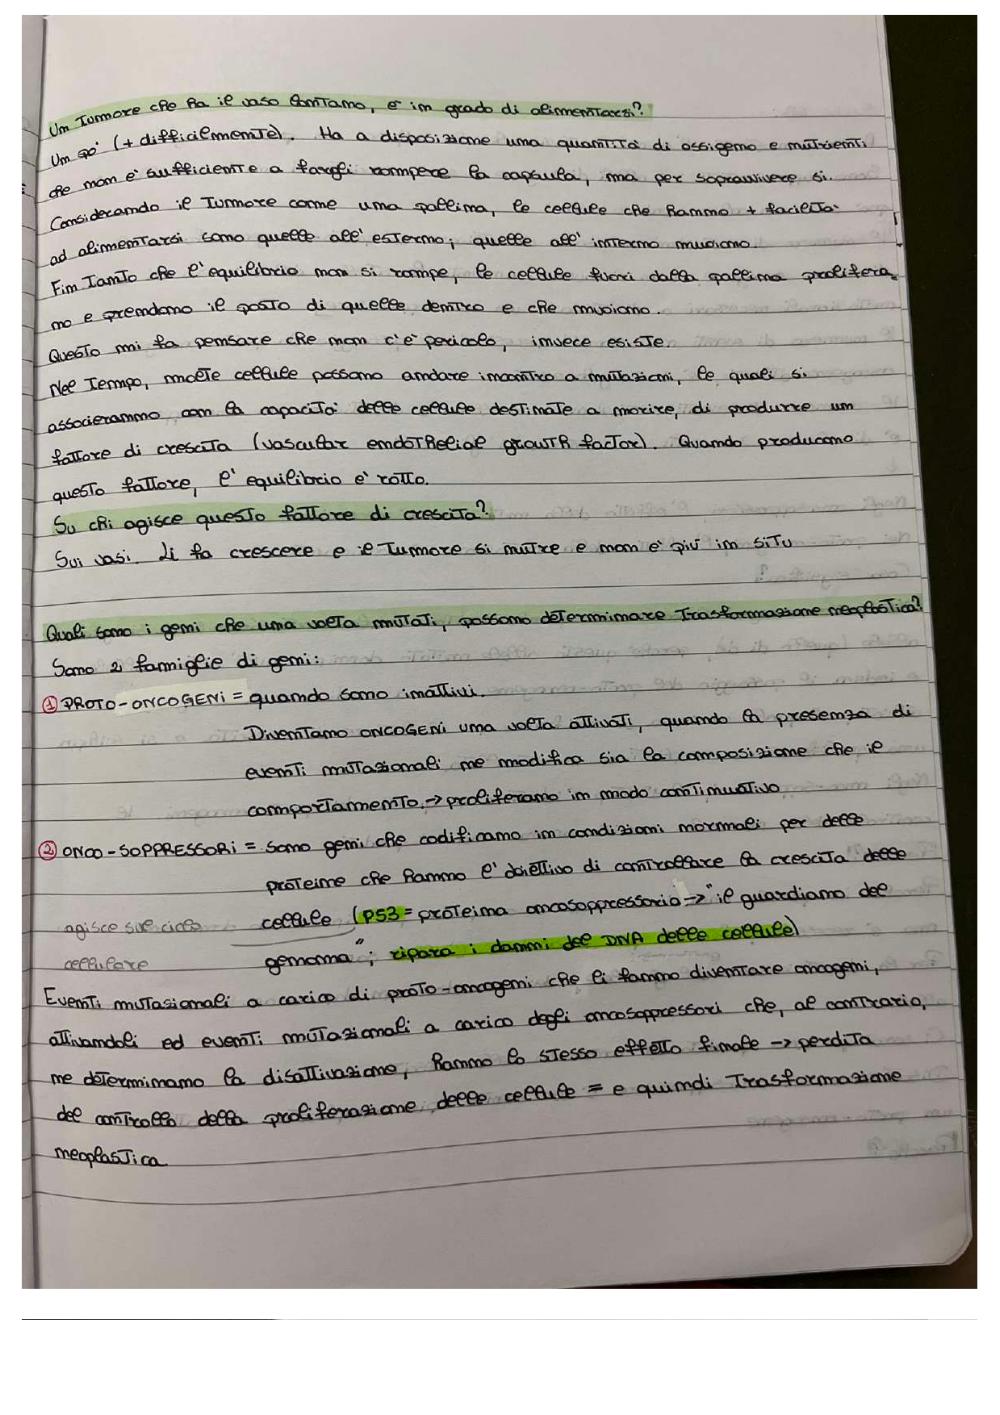 Un Tumore che ha il vaso lontano, è in grado di alimentarsi?
Un pò (+ difficilmente). Ha a disposizione una quantità di ossigeno e nutrienti
che non è sufficiente a fargli rompere la capsula, ma per sopravvivere si.
Considerando il Tumore come una pallina, le cellule che hanno + facilità
ad alimentarsi sono quelle all'esterno; quelle all'interno muoiono.
Fin Tanto che l'equilibrio non si rompe, le cellule fuori dalla pallina prolifera
no e prendono il posto di quelle dentro e che muoiono.
Questo mi fa pensare che non c'è pericolo, invece esiste.
Nel Tempo, molte cellule possono andare incontro a mutazioni, le quali si
associeranno con la capacità delle cellule destinate a morire, di produrre un
fattore di crescita (vascular endothelial growth factor). Quando producono
questo fattore, l'equilibrio è rotto.
Su chi agisce questo fattore di crescita?
Sui vasi. Li fa crescere e il Tumore si nutre e non è più in situ
Quali sono i geni che una volta mutati, possono determinare Trasformazione neoplastica?
Sono 2 famiglie di geni:
① PROTO-ONCOGENI = quando sono inattivi.
Diventano ONCOGENI una volta attivati, quando la presenza di
eventi mutazionali ne modifica sia la composizione che il
comportamento. → proliferano in modo continuativo
② ONCO-SOPPRESSORI = sono geni che codificano in condizioni normali per delle
proteine che hanno l'obiettivo di controllare la crescita delle
cellule (P53 = proteina oncosoppressoria → "il guardiano del
agisce sul ciclo cellulare
genoma"; ripara i danni del DNA delle cellule)
Eventi mutazionali a carico di proto-oncogeni che li fanno diventare oncogeni,
attivandoli ed eventi mutazionali a carico degli oncosoppressori che, al contrario,
ne determinano la disattivazione, hanno lo stesso effetto finale → perdita
del controllo della proliferazione delle cellule = e quindi Trasformazione
neoplastica